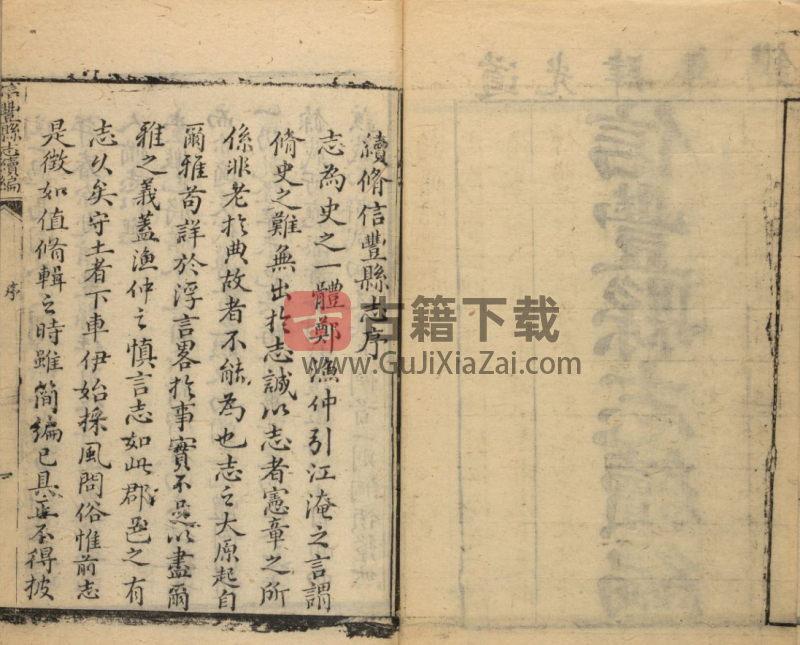 續脩信豐縣志序
志為史之一體鄭漁仲引江淹之言謂
脩史之難無出於志誠以志者憲章之所
係非老於典故者不能為也志之大原起自
爾雅苟詳於浮言畧於事實不足以盡爾
雅之義蓋漁仲之慎言志如此郡邑之有
志久矣守土者下車伊始採風問俗惟前志
是徵如值脩輯之時雖簡編已具正不得披
信豐縣志續編
序
一
古籍下载
www.GuJiXiaZai.com
道光